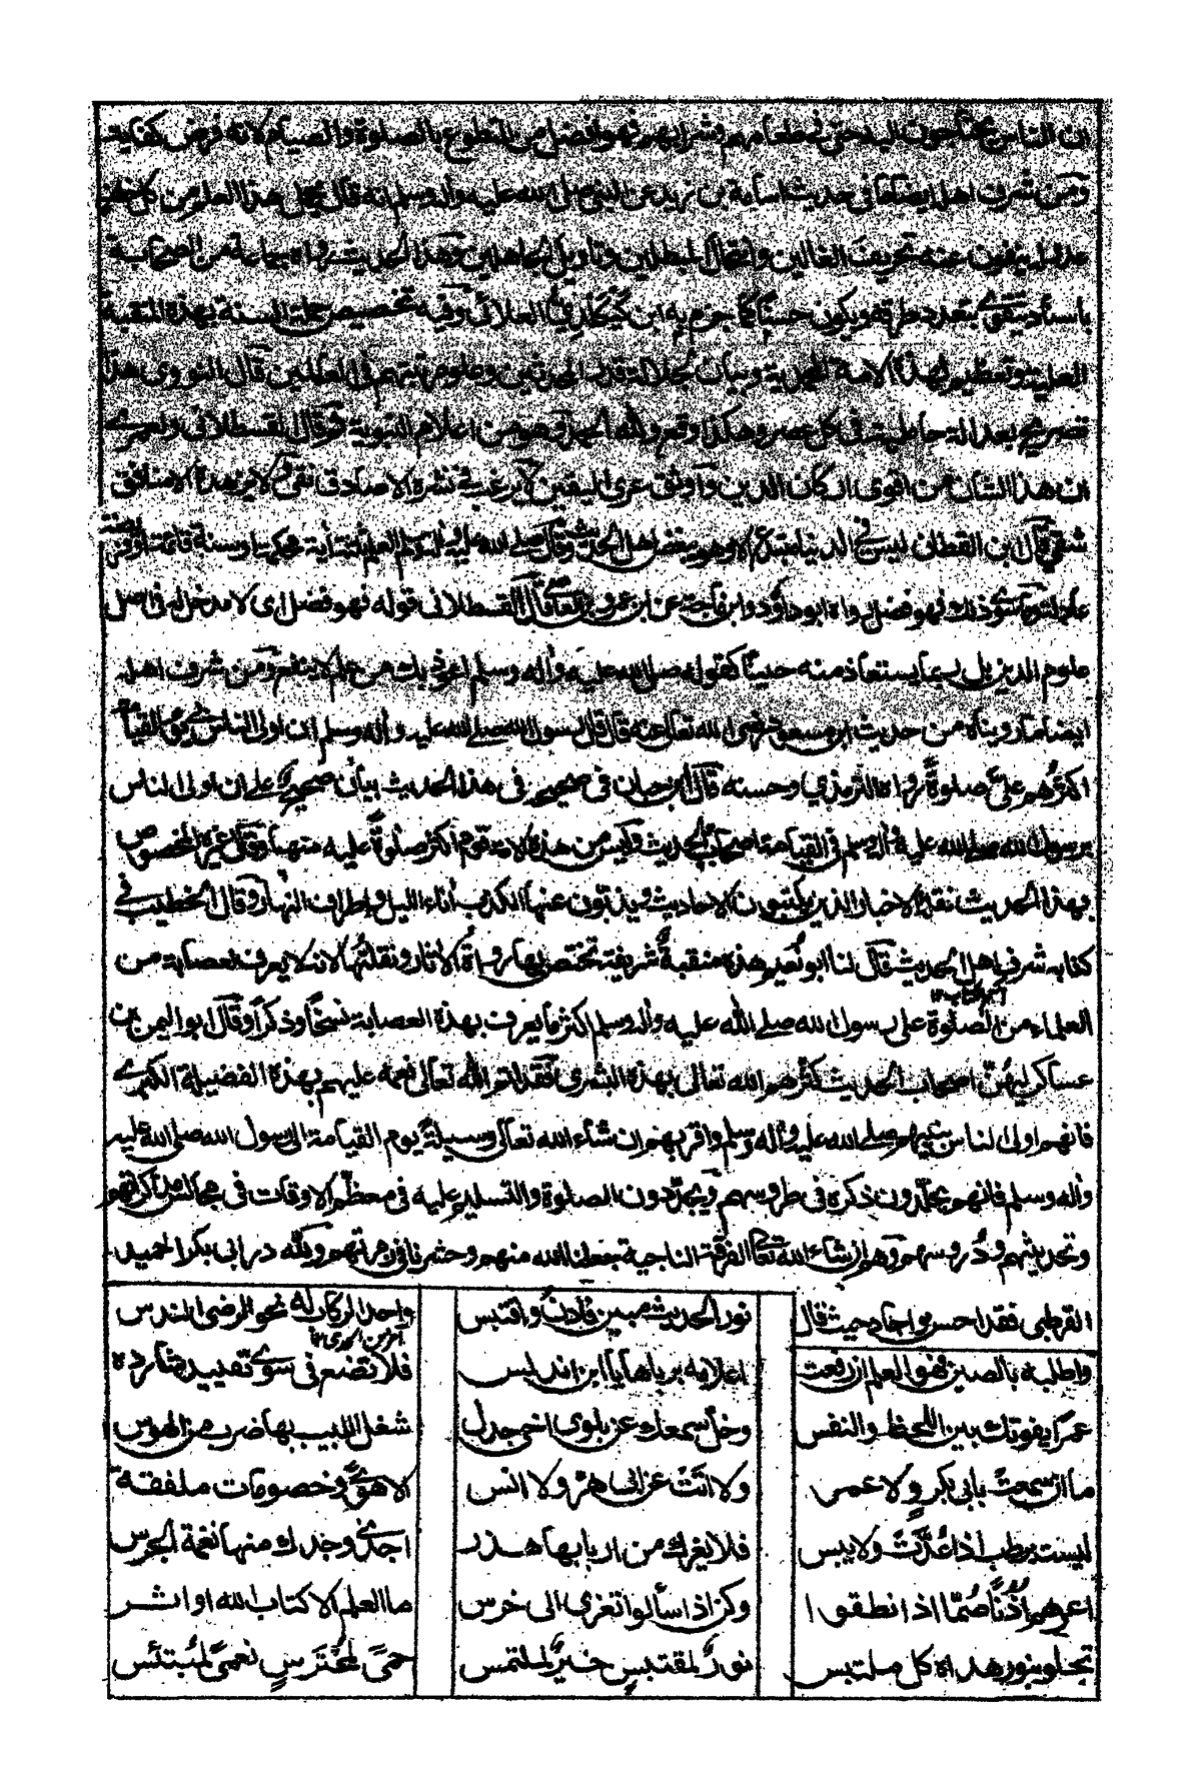 ان الناس يحتاجون اليه حتى في طعامهم وشرابهم فهو افضل من التطوع بالصلوة والصيام لانه فرض كفاية
ومن شرف اهله ايضا ما في حديث اسامة بن زيد عن النبي صلى الله عليه واله وسلم انه قال يحمل هذا العلم من كل خلف
عدوله ينفون عنه تحريف الغالين وانتحال المبطلين وتاويل الجاهلين وهذا الحديث رواه جماعة من الصحابة
باسانيد يقوى بتعدد طرقه ويكون حسنا كما جزم به ابن كيكلدي العلائي وفيه تخصيص حملة السنة بهذه المنقبة
العلية وتعظيم لهذه الامة المحمدية وبيان لجلالة قدر المحدثين وعلو مرتبتهم في العالمين قال النووي هذا
تصريح بعدالة حامليه في كل عصر وهكذا وقع ولله الحمد وهو من اعلام النبوية وقال القسطلاني ولعمري
ان هذا الشان من اقوى اركان الدين واوثق عرى اليقين لا يرغب في نشره الا صادق تقي ولا يزهده الا منافق
شقي قال ابن القطان ليس في الدنيا مبتدع الا وهو يبغض اهل الحديث وقال صلى الله عليه واله وسلم العلم ثلثة آية محكمة او سنة قائمة او فريضة
عادلة وما سوى ذلك فهو فضل رواه ابو داود وابن ماجة عن ابن عمرو قال القسطلاني قوله فهو فضل اي لا مدخل له في اصل
علوم الدين بل ربما يستعاذ منه حينا كقوله صلى الله عليه وآله وسلم اعوذ بك من علم لا ينفع ومن شرف اهله
ايضا ما رويناه من حديث ابن مسعود رضي الله تعالى عنه قال قال رسول الله صلى الله عليه وآله وسلم ان اولى الناس بي يوم القيامة
اكثرهم علي صلوة رواه الترمذي وحسنه قال ابن حبان في صحيحه في هذا الحديث بيان صحيح على ان اولى الناس
برسول الله صلى الله عليه واله وسلم في القيامة اصحاب الحديث وليس من هذه الامة قوم اكثر صلوة عليه منهم وقال غيره المخصوص
بهذا الحديث نقلة الاخبار الذين يكتبون الاحاديث ويذبون عنها الكذب آناء الليل واطراف النهار وقال الخطيب في
كتابه شرف اهل الحديث قال لنا ابو نعيم هذه منقبة شريفة تختص بها رواة الآثار ونقلتها لانه لا يعرف لعصابة من
اسم الكتاب ١٢
العلماء من الصلوة على رسول الله صلى الله عليه واله وسلم اكثر ما يعرف بهذه العصابة نسخا وذكرا وقال ابو اليمن بن
عساكر ليهن اصحاب الحديث كثرهم الله تعالى بهذه البشرى فقد اتم الله تعالى نعمه عليهم بهذه الفضيلة الكبرى
فانهم اولى الناس بنبيهم صلى الله عليه وآله وسلم واقربهم ان شاء الله تعالى وسيلة يوم القيامة الى رسول الله صلى الله عليه
وآله وسلم فانهم يخلدون ذكره في طروسهم ويجددون الصلوة والتسليم عليه في معظم الاوقات في مجالس مذاكرتهم
وتحديثهم ودروسهم وهم ان شاء الله تعالى الفرقة الناجية جعلنا الله منهم وحشرنا في زمرتهم ولله در ابي بكر الحميد
القرطبي فقد احسن واجاد حيث قال
نور الحديث مبين فادن واقتبس
واحد الركاب له نحو الرضى الندس
واطلبه بالصين فهو العلم ان رفعت
اعلامه برباها يا ابن اندلس
فلا تضع في سوى تقييد شارده
عمرا يفوتك بين اللحظ والنفس
وخل سمعك عن بلوى اخي جدل
شغل اللبيب بها ضرب من الهوس
ما ان سمعت بابي بكر ولا عمر
ولا اتت عن ابي هر ولا انس
الا هوى وخصومات ملفقة
ليست برطب اذا عدت ولا يبس
فلا يغرك من اربابها هذر
اجدى وجدك منها نغمة الجرس
اعرهم اذنا صما اذا نطقوا
وكن اذا سألوا تعزى الى خرس
ما العلم الا كتاب الله او اثر
تجلو بنور هداه كل ملتبس
نور لمقتبس خير لملتمس
حمى لمحترس نعمى لمبتئس